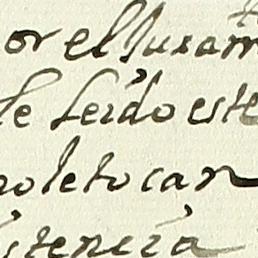 or el Juram
le leido este
no le tocan
istenzia